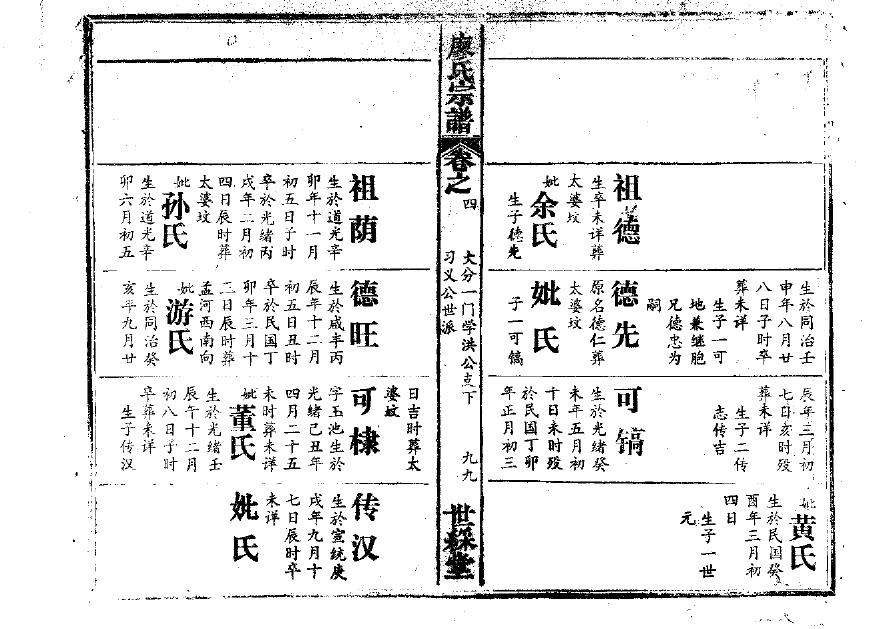 祖德
生卒未详葬
太婆坟
妣余氏
生子德先
生於同治壬
申年八月廿
八日子时卒
葬未详
生子一可
地兼继胞
兄德忠为
嗣
德先
原名德仁葬
太婆坟
妣氏
子一可镐
辰年三月初
七日亥时殁
葬未详
生子二传
志传吉
可镐
生於光绪癸
未年五月初
十日未时殁
於民国丁卯
年正月初三
妣黄氏
生於民国癸
酉年三月初
四日
生子一世
元
廖氏宗譜
卷之四
大分一门学洪公支下
习义公世派
九九
世綵堂
祖荫
生於道光辛
卯年十一月
初五日子时
卒於光绪丙
戌年二月初
四日辰时葬
太婆坟
妣孙氏
生於道光辛
卯六月初五
德旺
生於咸丰丙
辰年十二月
初五日丑时
卒於民国丁
卯年三月十
二日辰时葬
孟河西南向
妣游氏
生於同治癸
亥年九月廿
日吉时葬太
婆坟
可棣
字玉池生於
光绪己丑年
四月二十五
未时葬未详
妣董氏
生於光绪壬
辰午十二月
初八日子时
卒葬未详
生子传汉
传汉
生於宣统庚
戌年九月十
七日辰时卒
未详
妣氏